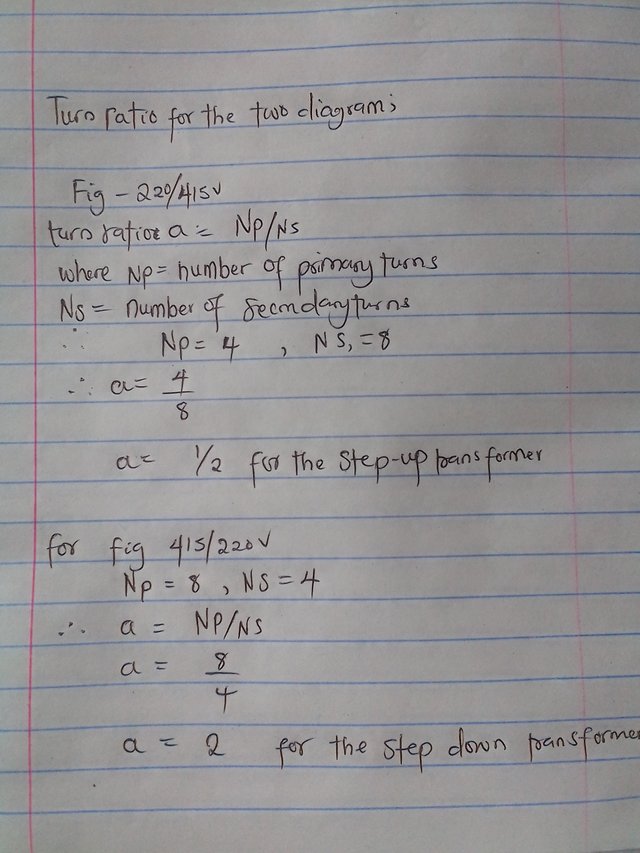 Turn ratio for the two diagram;
Fig - 220/415V
turn ratio a = Np/Ns
where Np = number of primary turns
Ns = number of secondary turns
∴ Np = 4 , NS, = 8
∴ a = 4/8
a = 1/2 for the step-up transformer
for fig 415/220V
Np = 8 , NS = 4
∴ a = NP/NS
a = 8/4
a = 2 for the step down transformer